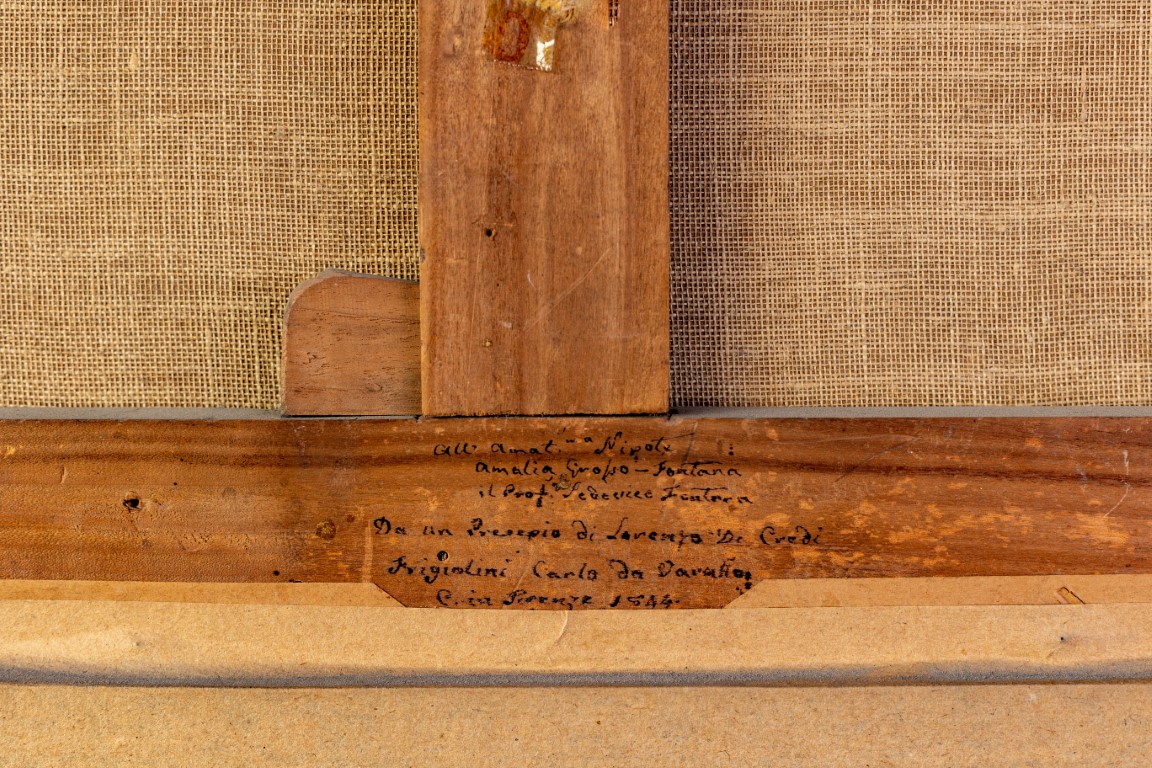 All' Amat.ma Nipote :
Amalia Grosso - Fontana
il Prof.r Federico Fontana
Da un Presepio di Lorenzo Di Credi
Frigiolini Carlo da Varallo
C. in Firenze 1844.